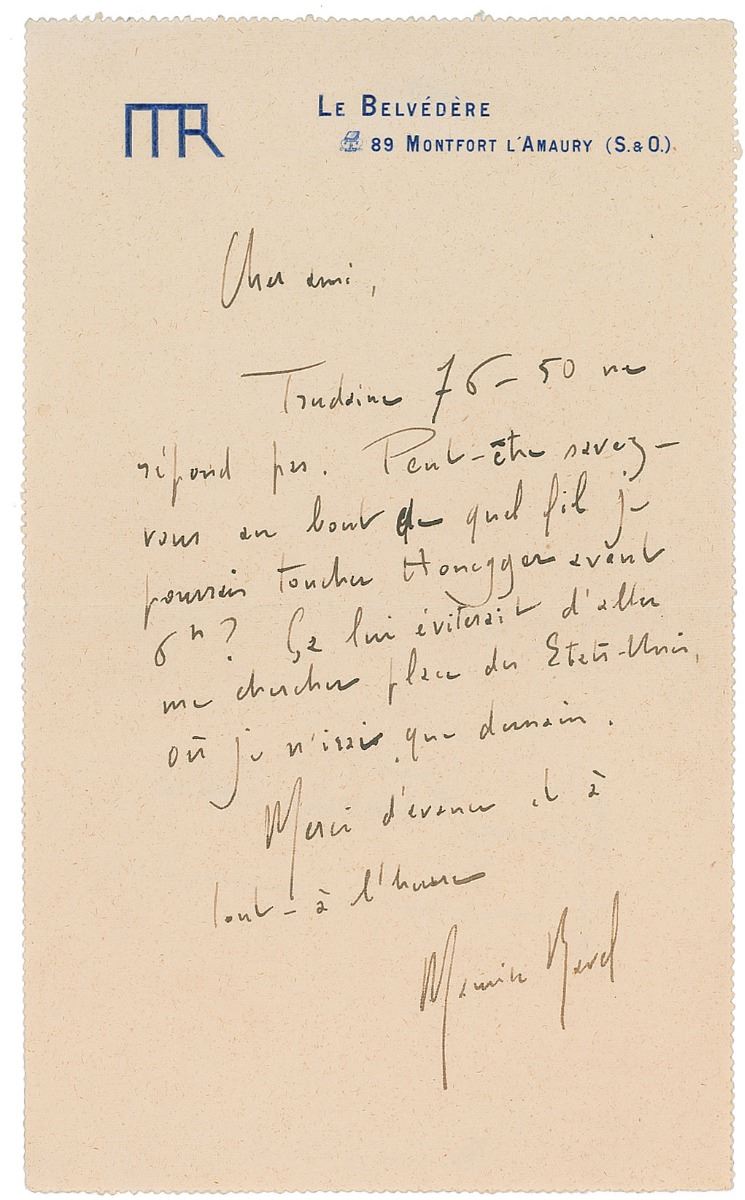 MR
LE BELVÉDÈRE
89 MONTFORT L'AMAURY (S.&O.)
Cher ami,
Trudaine 76-50 ne
répond pas. Peut-être savez-
vous au bout de quel fil je
pourrais toucher Honegger avant
6h? Ça lui éviterait d'aller
me chercher place des Etats-Unis,
où je n'irai que demain.
Merci d'avance et à
tout-à l'heure
Maurice Ravel